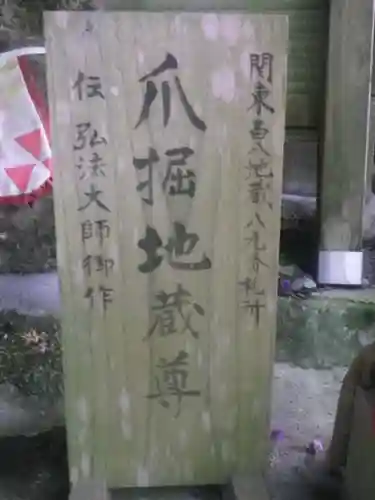 関東百八地蔵八九番札所
爪掘地蔵尊
伝弘法大師御作